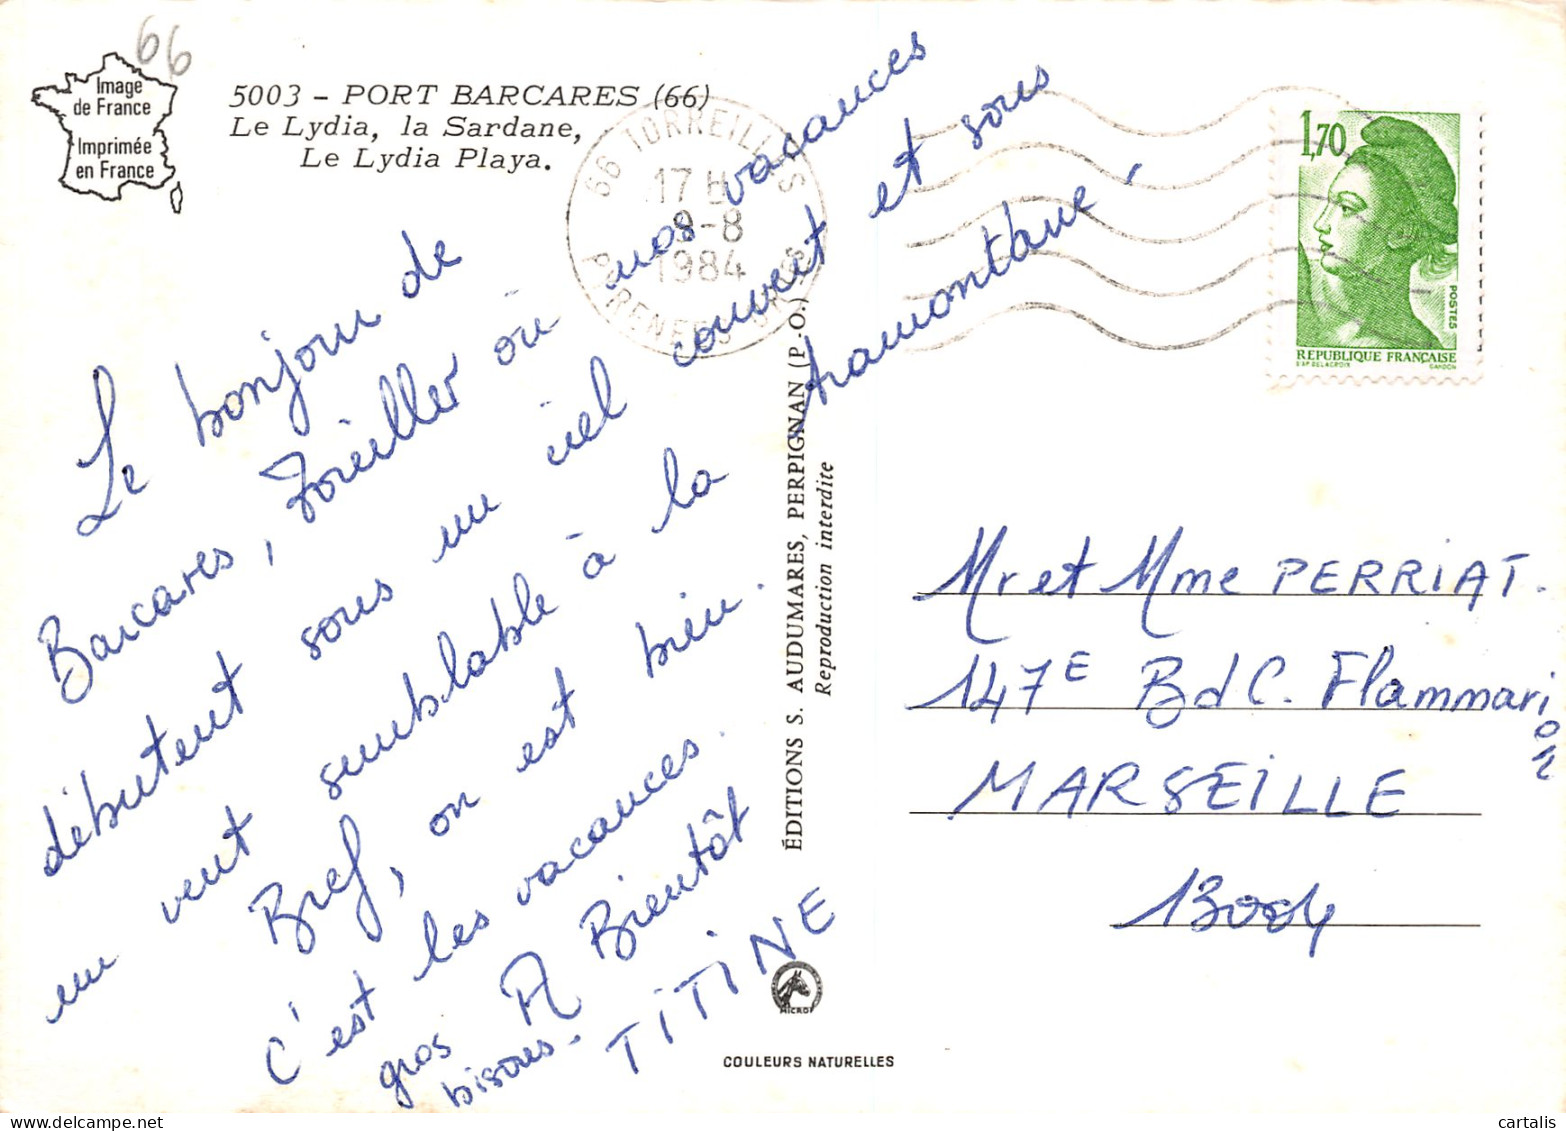 66
Image
de France
Imprimée
en France
5003 - PORT BARCARES (66)
Le Lydia, la Sardane,
Le Lydia Playa.
66 TORREILLES
17 H
9-8
1984
PYRENEES OR.
1,70
POSTES
REPUBLIQUE FRANÇAISE
D'AP DELACROIX
GANDON
Le bonjour de
Barcares, Toreiller où nos vacances
débutent sous un ciel couvert et sous
un vent semblable à la tramontane,
Bref, on est bien.
c'est les vacances.
gros A Bientôt
bisous. TITINE
ÉDITIONS S. AUDUMARES, PERPIGNAN (P.-O.)
Reproduction interdite
Mr et Mme PERRIAT.
147E Bd C. Flammarion
MARSEILLE
13004
MICRO
COULEURS NATURELLES
cartalis
delcampe.net